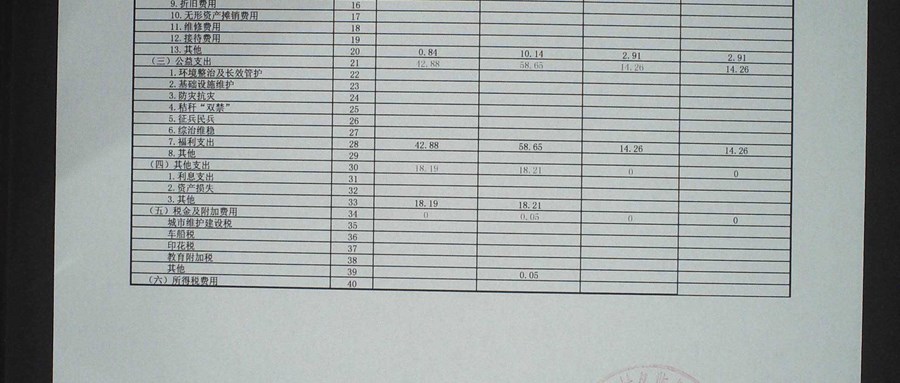 9.折旧费用 16
10.无形资产摊销费用 17
11.维修费用 18
12.接待费用 19
13.其他 20 0.84 10.14 2.91 2.91
(三)公益支出 21 42.88 58.65 14.26 14.26
1.环境整治及长效管护 22
2.基础设施维护 23
3.防灾抗灾 24
4.秸秆“双禁” 25
5.征兵民兵 26
6.综治维稳 27
7.福利支出 28 42.88 58.65 14.26 14.26
8.其他 29
(四)其他支出 30 18.19 18.21 0 0
1.利息支出 31
2.资产损失 32
3.其他 33 18.19 18.21
(五)税金及附加费用 34 0 0.05 0 0
城市维护建设税 35
车船税 36
印花税 37
教育附加税 38
其他 39 0.05
(六)所得税费用 40